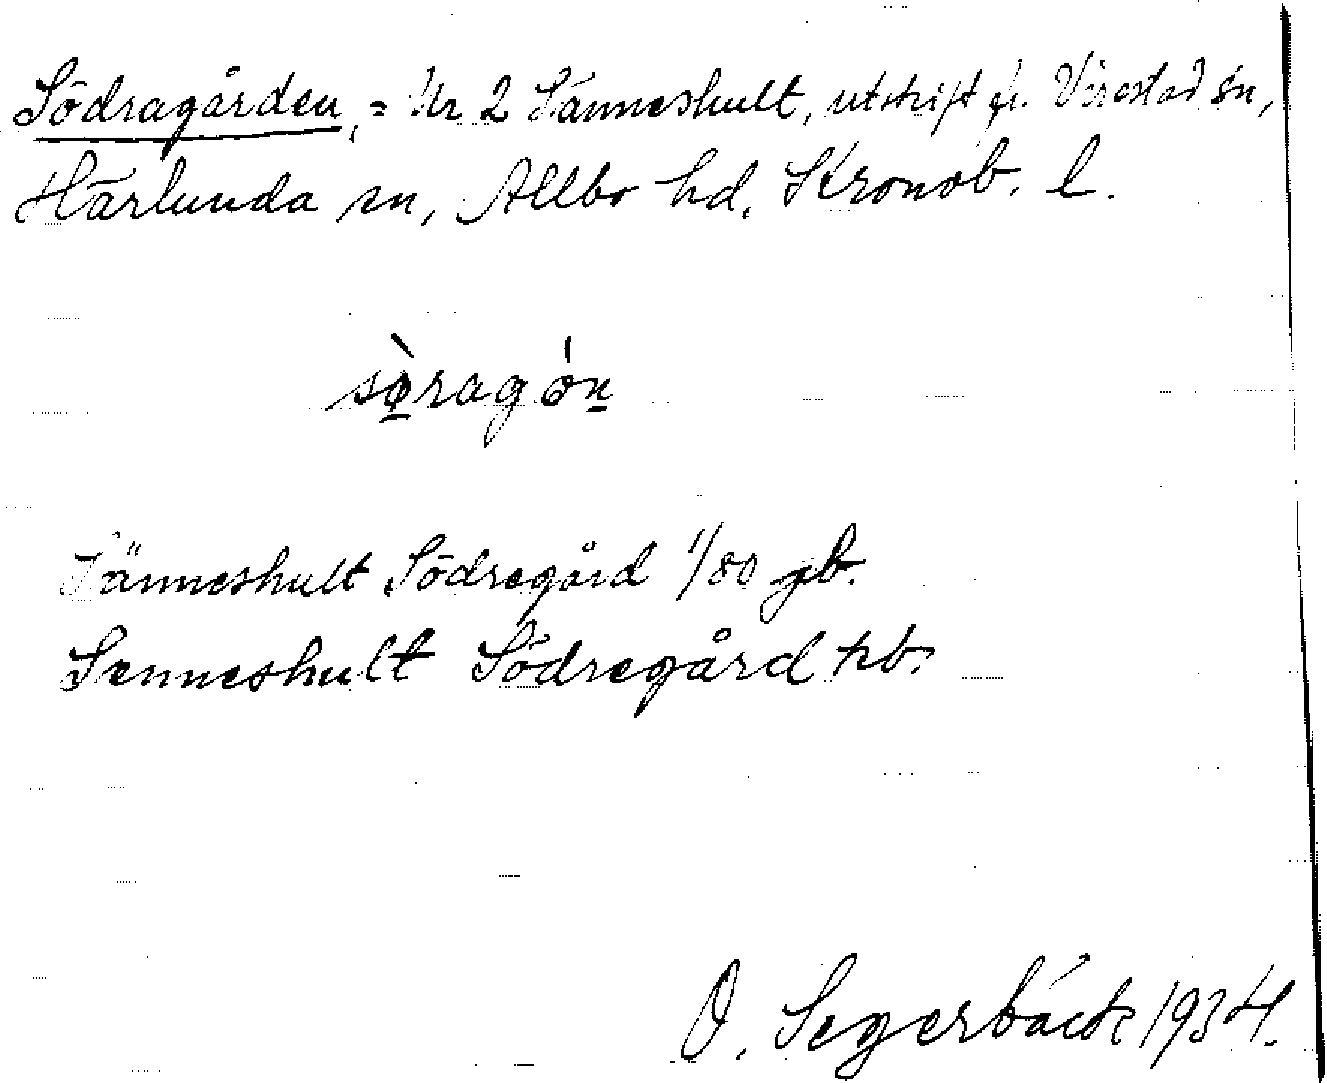 Södragården, = Nr 2 Sänneshult, utskift fr. Virestad sn,
Härlunda sn, Allbo hd, Kronob. l.
sø̀ragón
Sänneshult Södregård 1/80 jb.
Senneshult Södregård hb.
O. Segerbäck 1934.